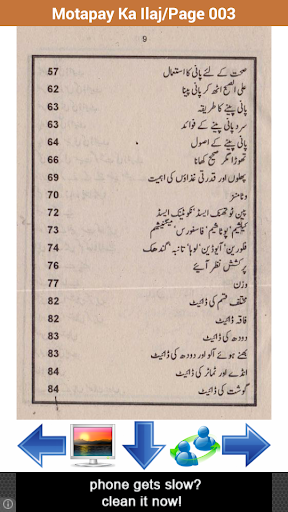 Motapay Ka Ilaj/Page 003
9
صحت کے لئے پانی کا استعمال 57
علی الصبح اٹھ کر پانی پینا 62
پانی پینے کا طریقہ 63
سرد پانی پینے کے فوائد 63
پانی پینے کے اصول 64
تھوڑا مگر صحیح کھانا 66
پھلوں اور قدرتی غذاؤں کی اہمیت 69
وٹامنز 70
پین ٹوتھنک ایسڈ' نکوٹینک ایسڈ 72
کیلشیم' پوٹاشیم' فاسفورس' میگنیشیم 73
فلورین' آیوڈین' لوہا' تانبہ' گندھک 74
پرکشش نظر آئیے 76
وزن 77
مختلف قسم کی ڈائیٹ 82
فاقہ ڈائیٹ 82
دودھ کی ڈائیٹ 83
بھنے ہوئے آلو اور دودھ کی ڈائیٹ 83
انڈے اور ٹماٹر کی ڈائیٹ 84
گوشت کی ڈائیٹ 84
phone gets slow?
clean it now!